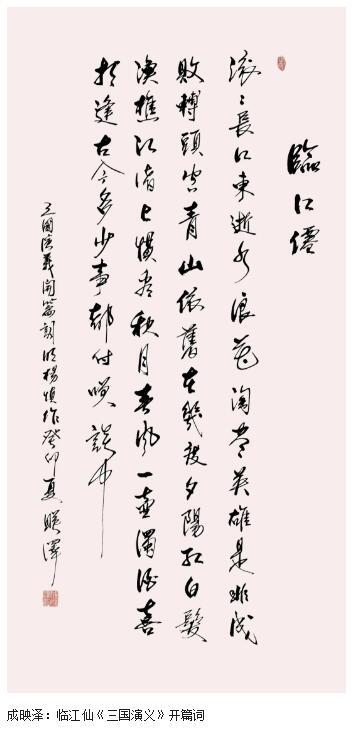 臨江僊
滚〻長江東逝水浪花淘盡英雄是非成
敗轉頭空青山依舊在幾度夕陽紅白髮
漁樵江渚上慣看秋月春風一壺濁酒喜
相逢古今多少事都付笑談中
三國演義開篇詞明楊慎作癸卯夏暎澤
成映泽：临江仙《三国演义》开篇词